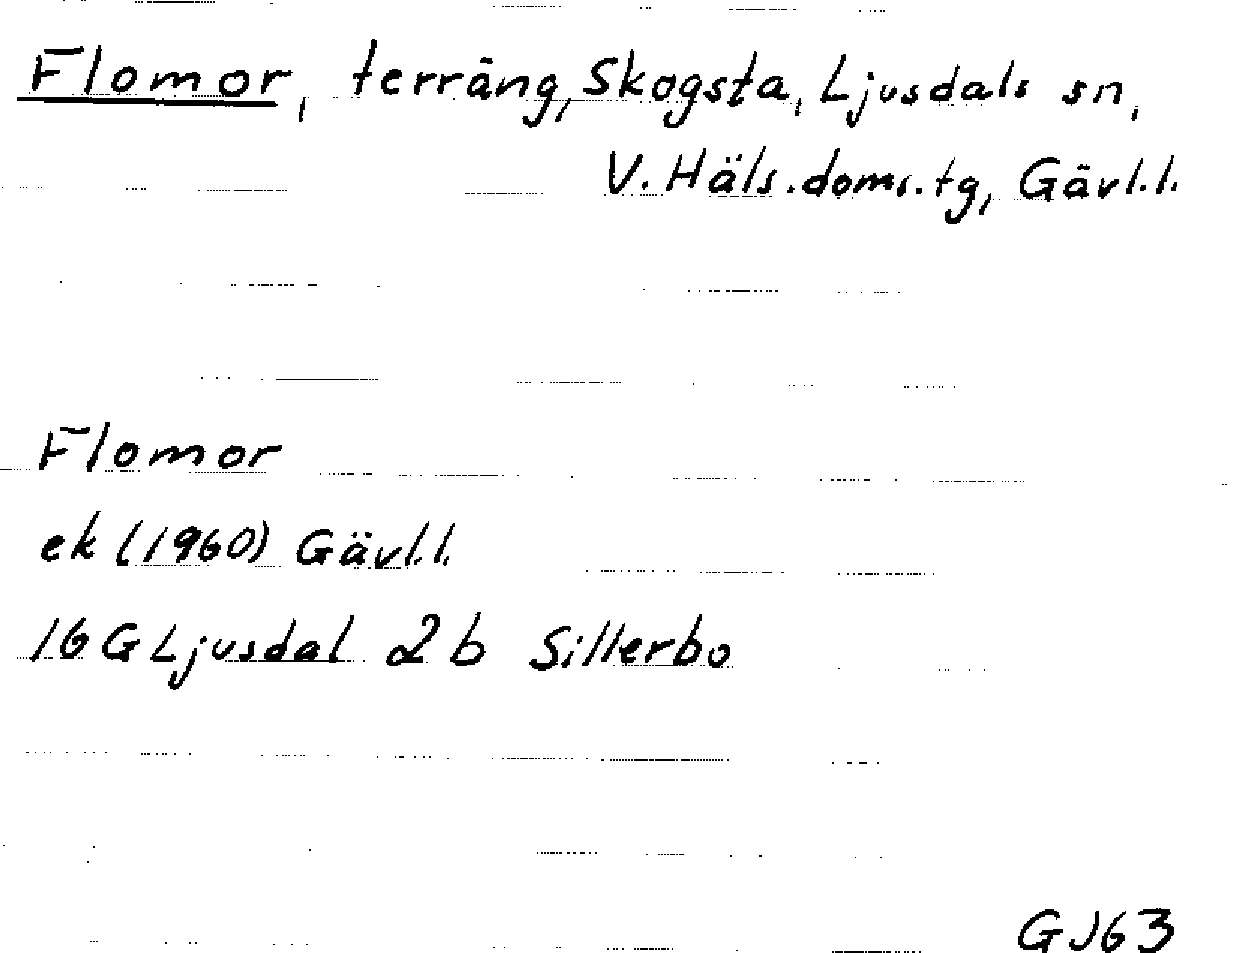 Flomor, terräng, Skogsta, Ljusdals sn,
V. Häls. doms. tg, Gävl. l.
Flomor
ek (1960) Gävl. l.
16 G Ljusdal 2 b Sillerbo
GJ63